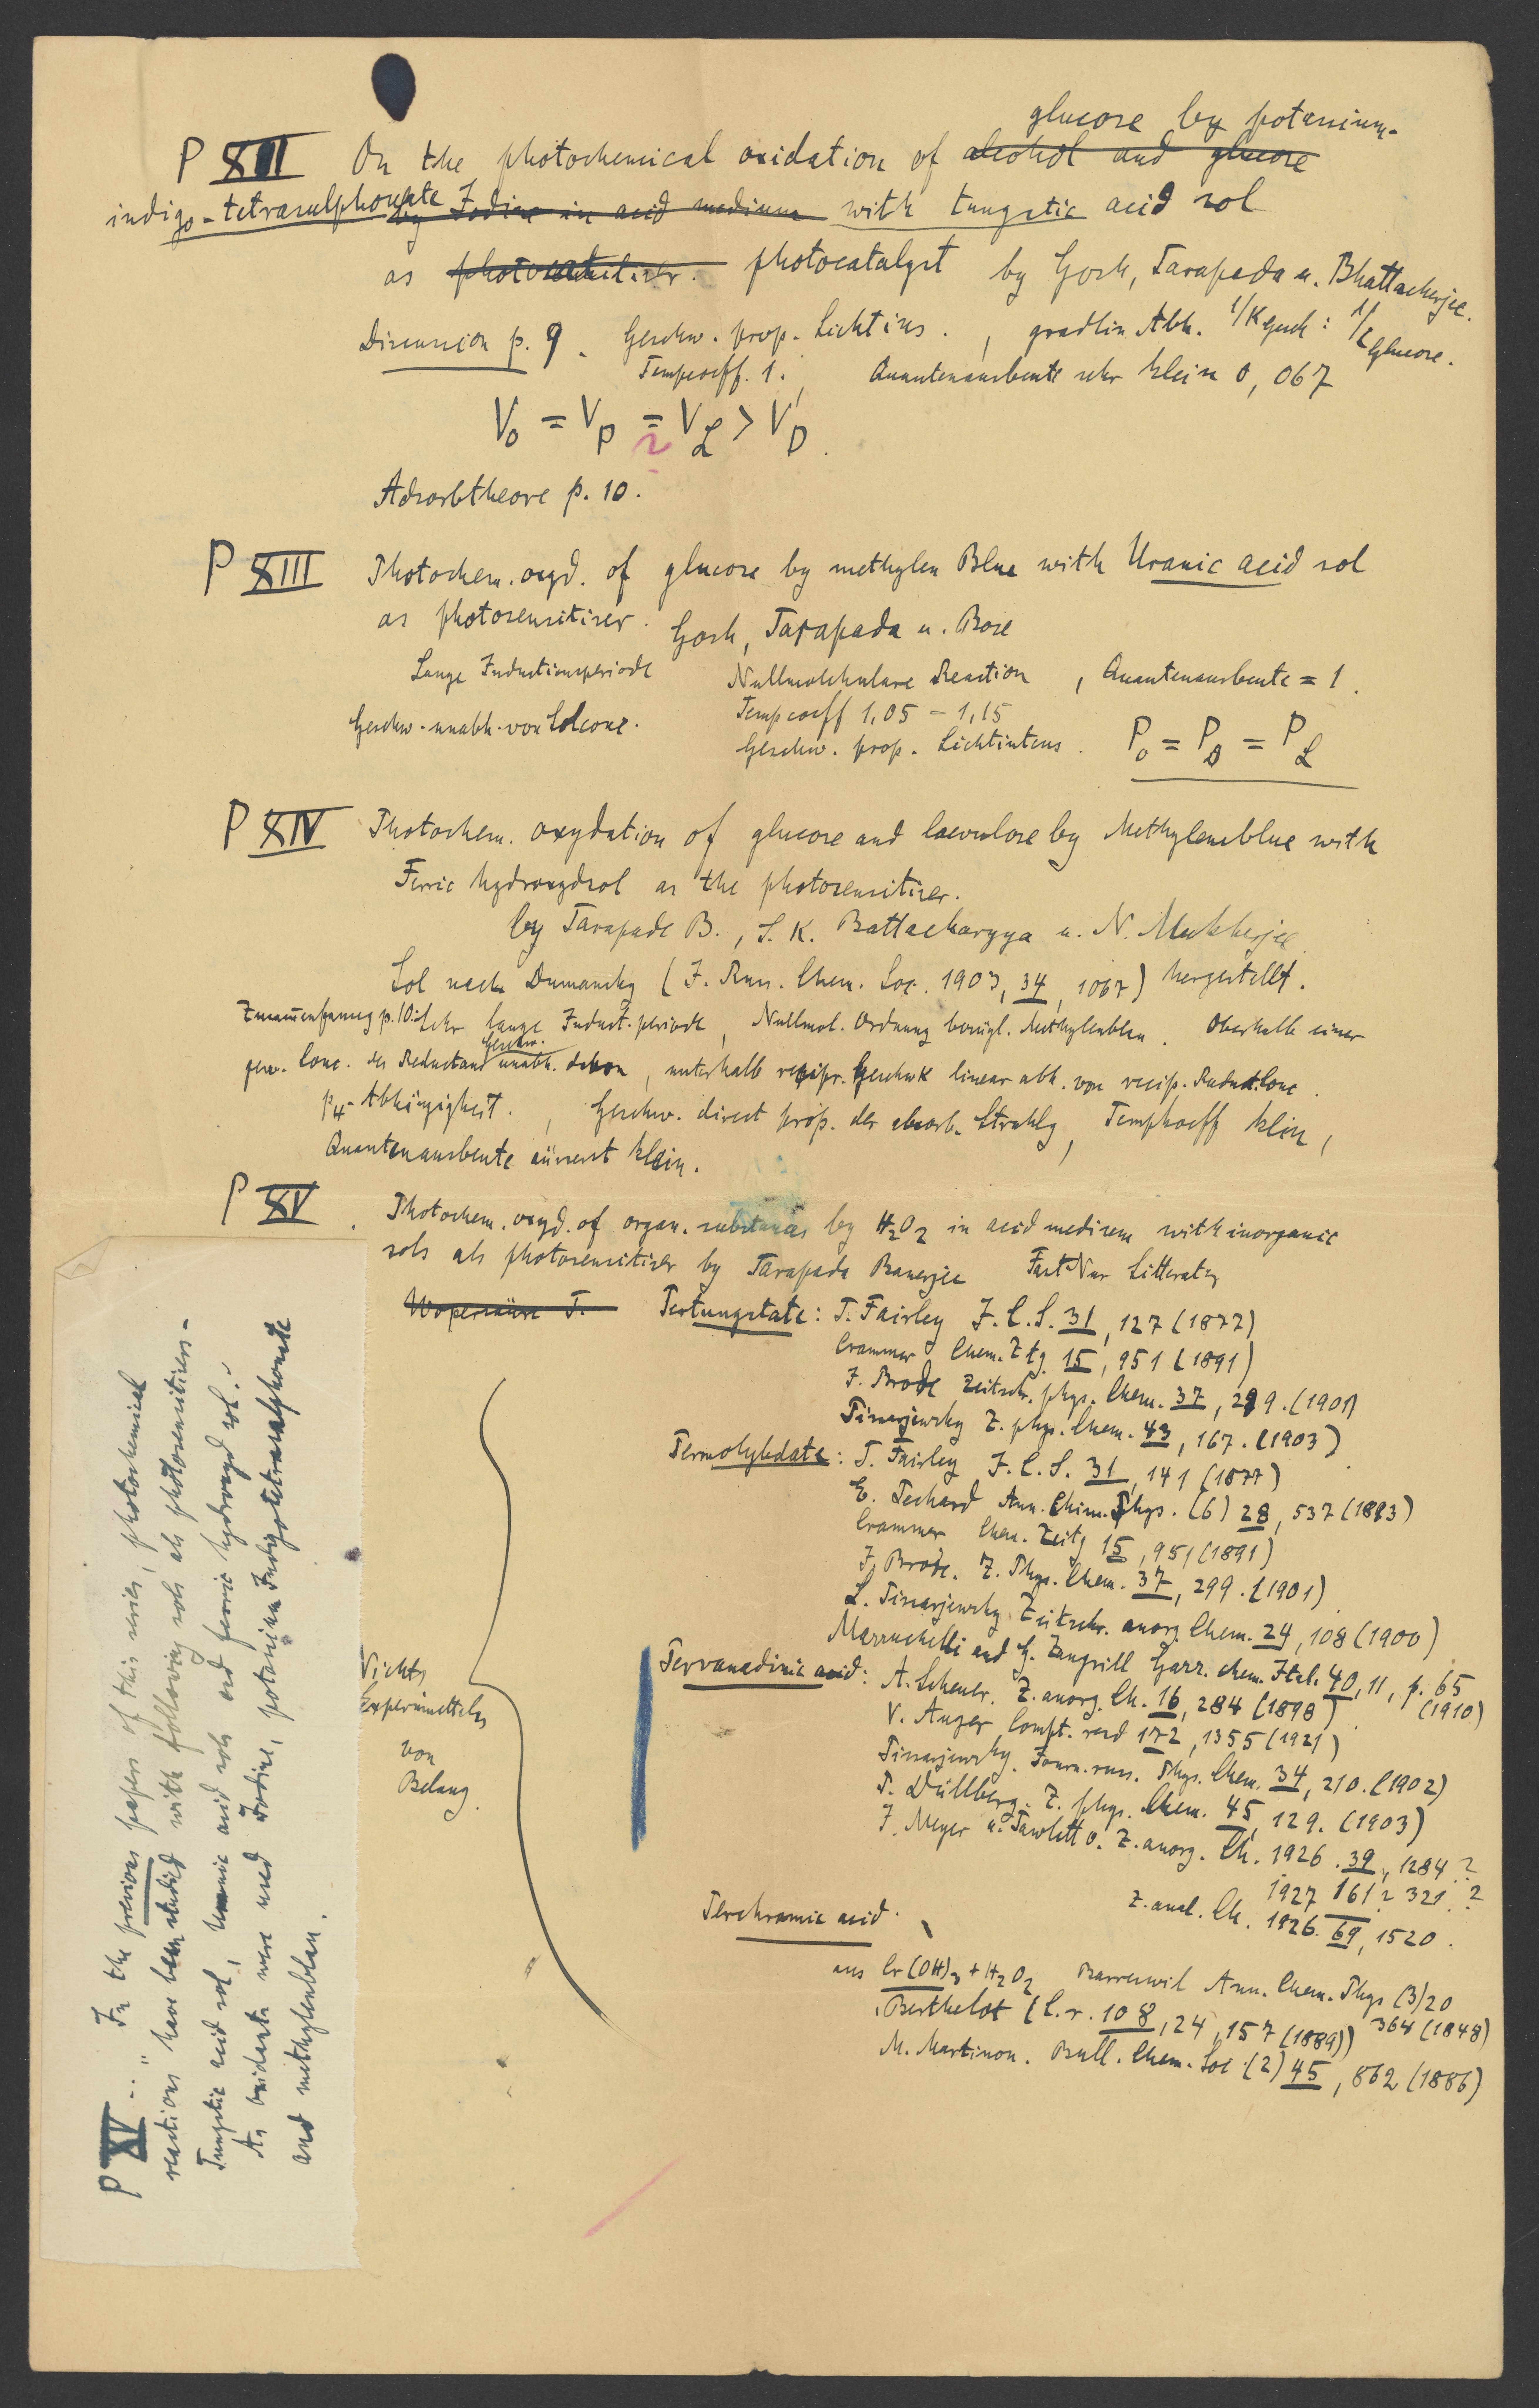 glucose by potassium-
P XII On the photochemical oxidation of alcohol and glucose
indigo-tetrasulphonate by Jodine in acid medium with tungstic acid sol
as photocatalyst by Gosh, Tarapada u. Bhattacherjee.
Discussion p. 9. Geschw. prop. Lichtins. , gradlin Abh. 1/K gesch : 1/c Glucose.
Tempcoeff. 1. , Quantenausbeute sehr klein 0,067
V0 = VP = VL > VD.
Adsorbtheore p. 10.
P XIII Photochem. oxyd. of glucose by methylen Blue with Uranic acid sol
as photosensitiser. Gosh, Tarapada u. Bose
Lange Inductionsperiode Nullmolekulare Reaction , Quantenausbeute = 1.
Geschw. unabh. von Solconc. Tempcoeff 1,05 – 1,15
Geschw. prop. Lichtintens. P0 = PD = PL
P XIV Photochem. oxydation of glucose and laevulose by Methyleneblue with
Ferric hydroxydsol as the photosensitiser.
by Tarapade B., S. K. Battacharyya u. N. Mukherjee
Sol nach Dumansky (J. Russ. Chem. Soc. 1903, 34, 1067) hergestellt.
Zusam̄enfassung p. 10: Sehr lange Induct. periode, Nullmol. Ordnung bezügl. Methylenblau. Oberhalb einer
Geschw.
gew. Conc. des Reductans unabh. davon, unterhalb recipr. GeschwK linear abh. von recip. Reduct.conc.
pH-Abhängigkeit. , Geschw. direct prop. der absorb. Strahlg, Tempkoeff klein,
Quantenausbeute äusserst klein.
P XV. Photochem. oxyd. of organ. substances by H2O2 in acid medium with inorganic
sols als photosensitiser by Tarapada Banerjee Fast Nur Litteratur
Pertungstate: T. Fairley J. C. S. 31, 127 (1877)
Crammer Chem. Ztg. 15, 951 (1891)
J. Brode Zeitschr. phys. Chem. 37, 299. (1901)
Pissarjewsky Z. phys. Chem. 43, 167. (1903)
Permolybdate: T. Fairley J. C. S. 31, 141 (1877)
E. Pechard Ann. Chim. Phys. (6) 28, 537 (1893)
Crammer Chem. Zeitg 15, 951 (1891)
J. Brode. Z. Phys. Chem. 37, 299. (1901)
L. Pissarjewsky Zeitschr. anorg. Chem. 24, 108 (1900)
Mazzuchelli and G. Zangrilli Gazz. chem. Ital. 40, 11, p. 65
(1910)
Pervanadinic acid: A. Scheuer. Z. anorg. Ch. 16, 284 (1898)
V. Auger Compt. rend 172, 1355 (1921)
Pissarjewsky. Journ. russ. Phys. Chem. 34, 210. (1902)
P. Düllberg. Z. phys. Chem. 45, 129. (1903)
J. Meyer u. Pawletto. Z. anorg. Ch. 1926. 39, 1284 ?
1927 161 ? 321 ?
Z. anal. Ch. 1926. 69, 1520.
Nichts
Experimentteles
von
Belang.
Perchromic acid.
aus Cr(OH)3 + H2O2 Barreswil Ann. Chem. Phys (3) 20
364 (1848)
Berthelot (C. r. 108, 24, 157 (1889))
M. Martinon. Bull. Chem. Soc (2) 45, 862 (1886)
P XV .. " In the previous papers of this series, photochemical
reactions have been studied with following sols als photosensitisers-
Tungstic acid sol, Uranic acid sols and ferric hydroxyd sol.
As oxidants were used Jodine, potassium Indigotetrasulphonate
and methylenblau.